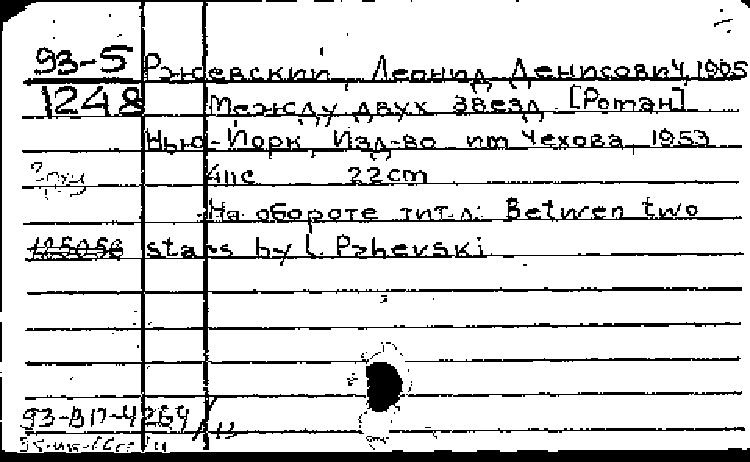 93-5 Ржевский, Леонид Денисович, 1905
1248 Между двух звезд [Роман]
Нью-Йорк, Изд-во им Чехова, 1953
411с 22cm
На обороте тит.л: Between two
125056 stars by L. Rzhevski
93-ВП-4269/